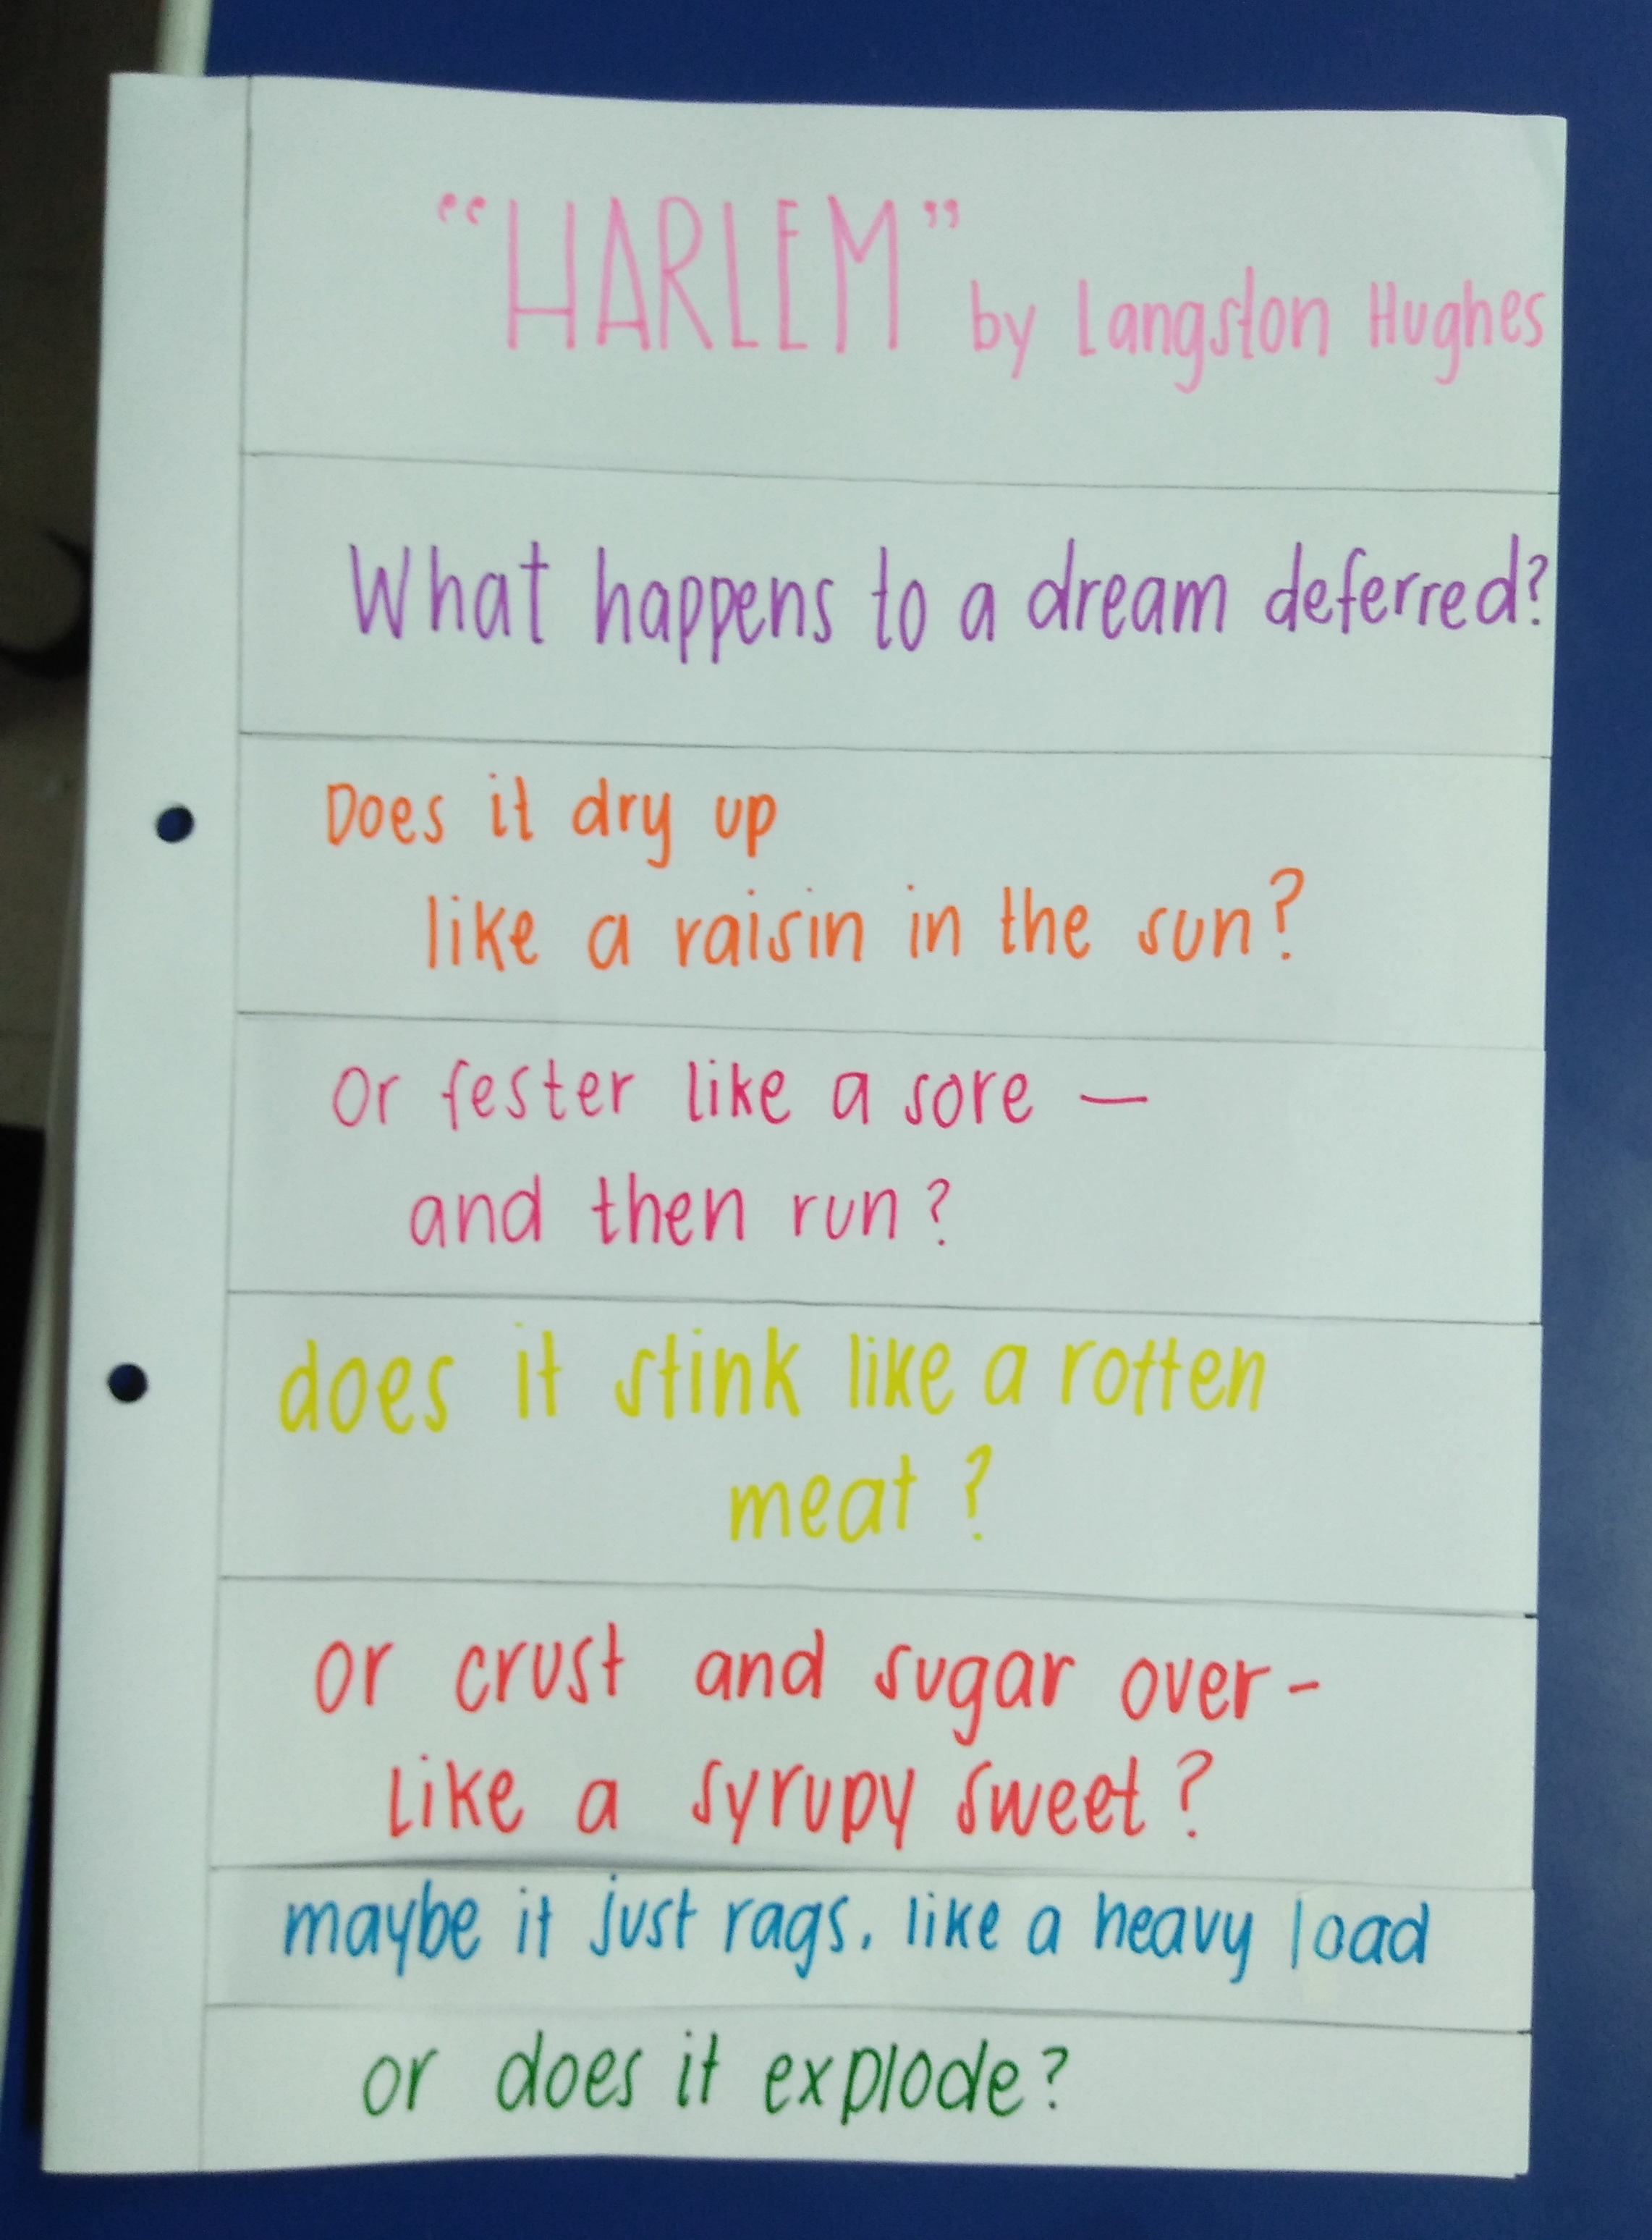 “HARLEM” by Langston Hughes
What happens to a dream deferred?
Does it dry up
like a raisin in the sun?
Or fester like a sore —
and then run?
does it stink like a rotten
meat?
or crust and sugar over-
like a syrupy sweet?
maybe it just rags. like a heavy load
or does it explode?